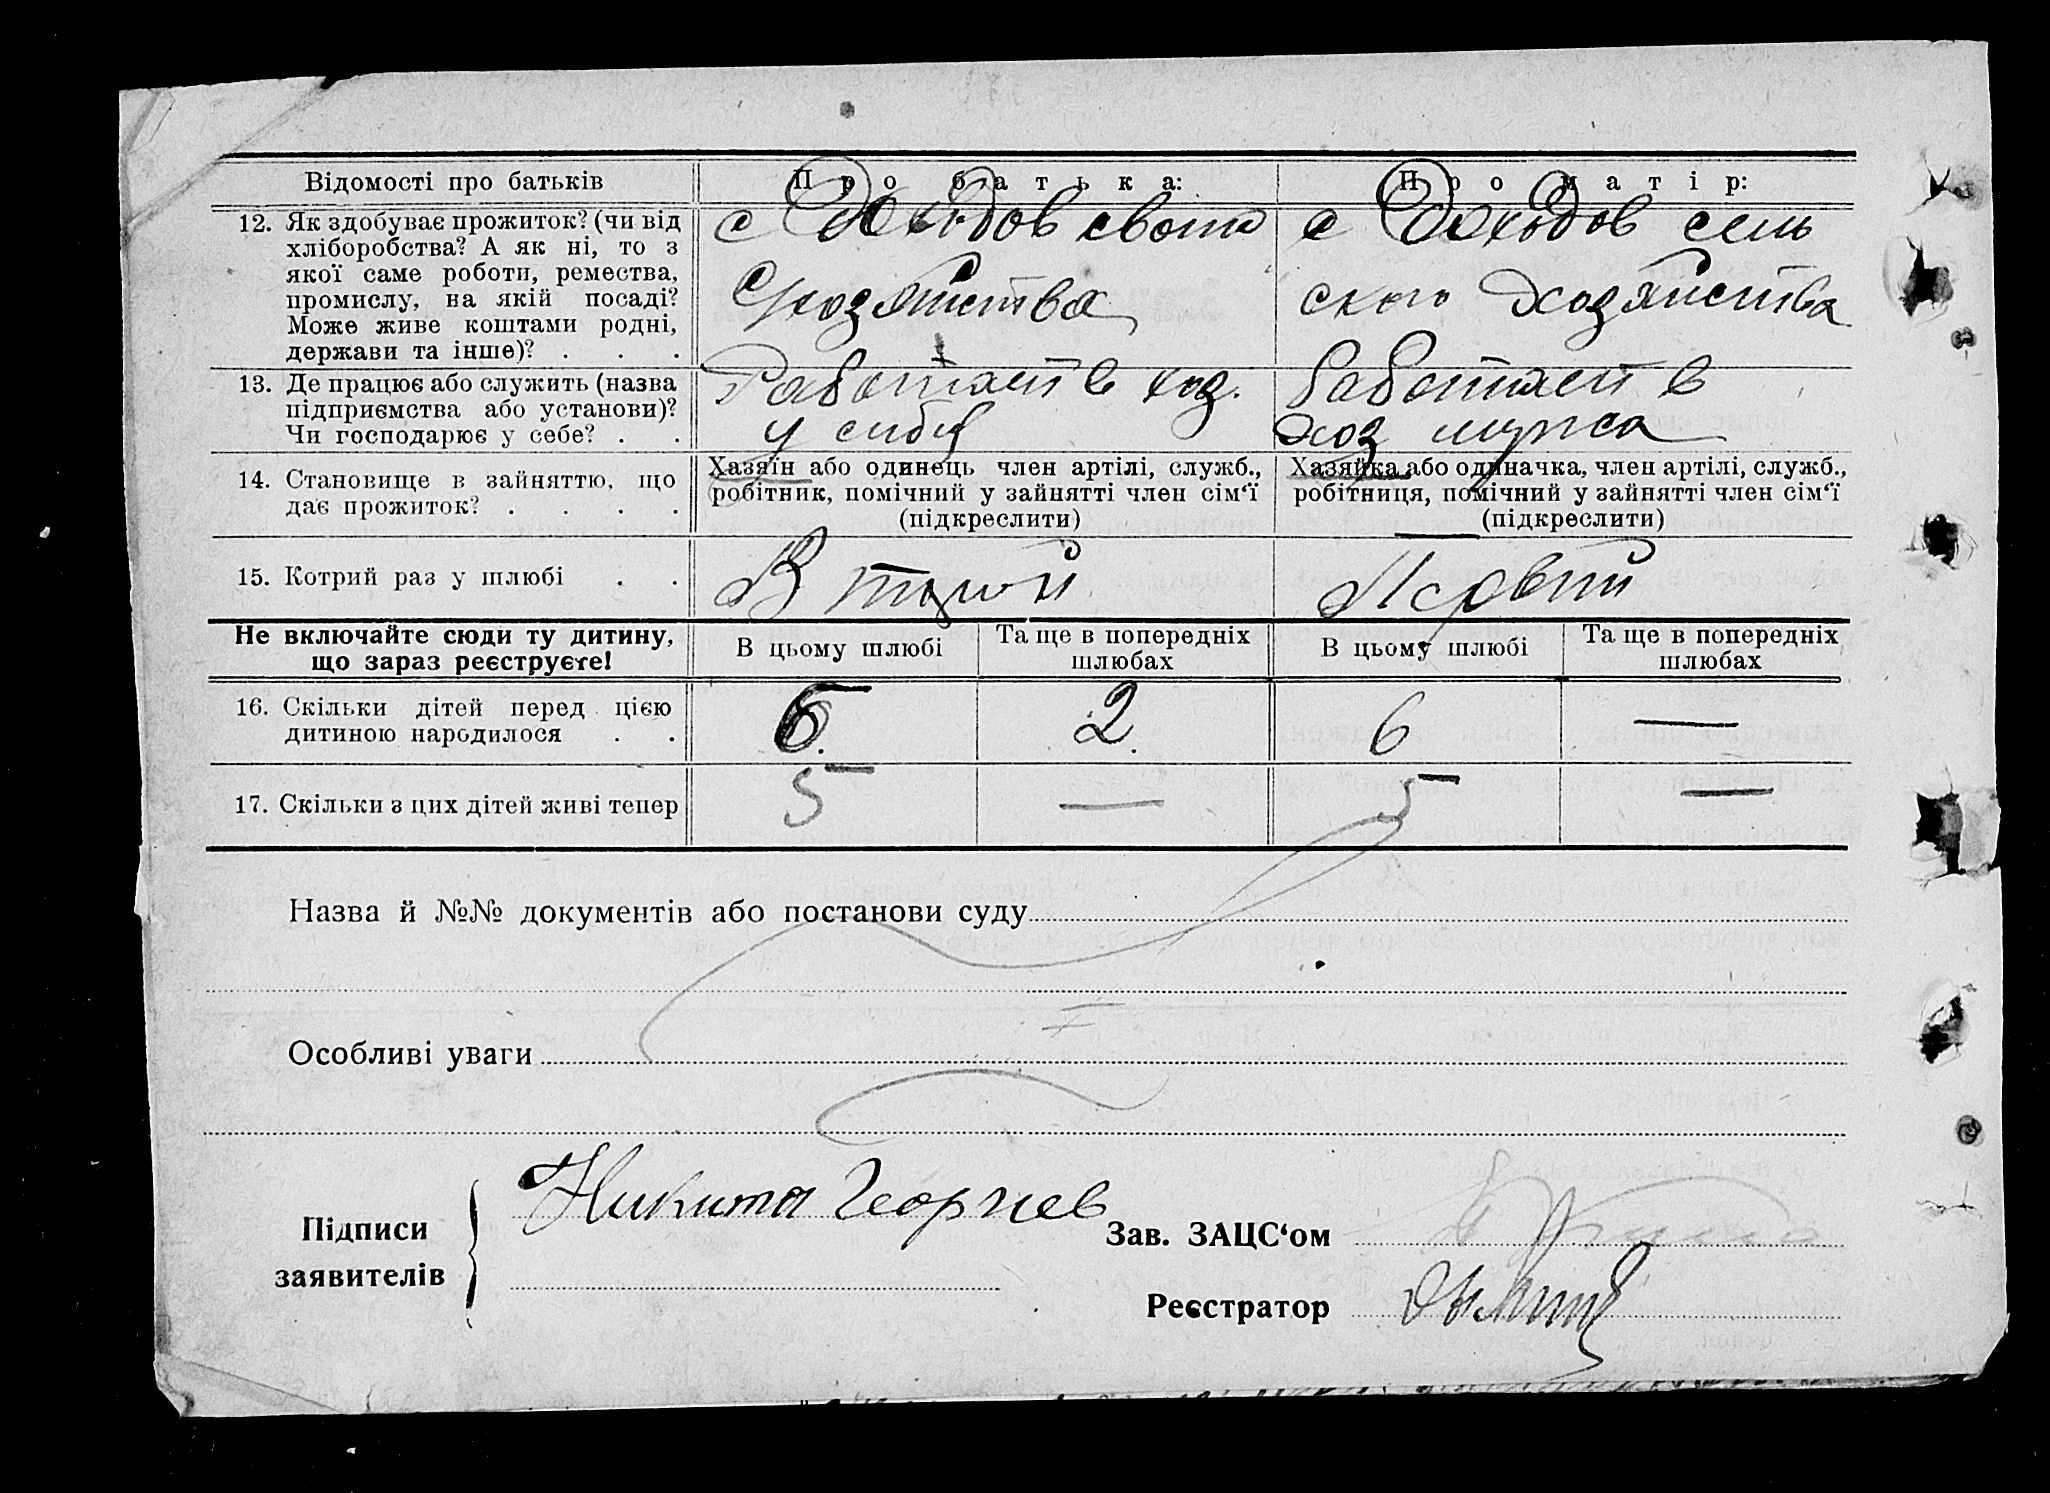 Відомості про батьків
Про батька:
Про матір:
12. Як здобуває прожиток? (чи від
хліборобства? А як ні, то з
якої саме роботи, ремества,
промислу, на якій посаді?
Може живе коштами родні,
держави та інше)? . . .
с Доходов своего
хозяйства
с Доходов сель
ского хозяйства
13. Де працює або служить (назва
підприємства або установи)?
Чи господарює у себе? . .
Работает в хоз.
у себя
Работает в
хоз мужа
14. Становище в зайняттю, що
дає прожиток? . . . .
Хазяїн або одинець член артілі, служб.,
робітник, помічний у зайнятті член сім‘ї
(підкреслити)
Хазяйка або одиначка, член артілі, служб.,
робітниця, помічний у зайнятті член сім‘ї
(підкреслити)
15. Котрий раз у шлюбі . .
Второй
Первий
Не включайте сюди ту дитину,
що зараз реєструєте!
В цьому шлюбі
Та ще в попередніх
шлюбах
В цьому шлюбі
Та ще в попередніх
шлюбах
16. Скільки дітей перед цією
дитиною народилося . .
6.
2.
6
—
17. Скільки з цих дітей живі тепер
5
—
5
—
Назва й №№ документів або постанови суду
Особливі уваги
Підписи
заявителів
Никита Георгиев
Зав. ЗАЦС‘ом
Реєстратор